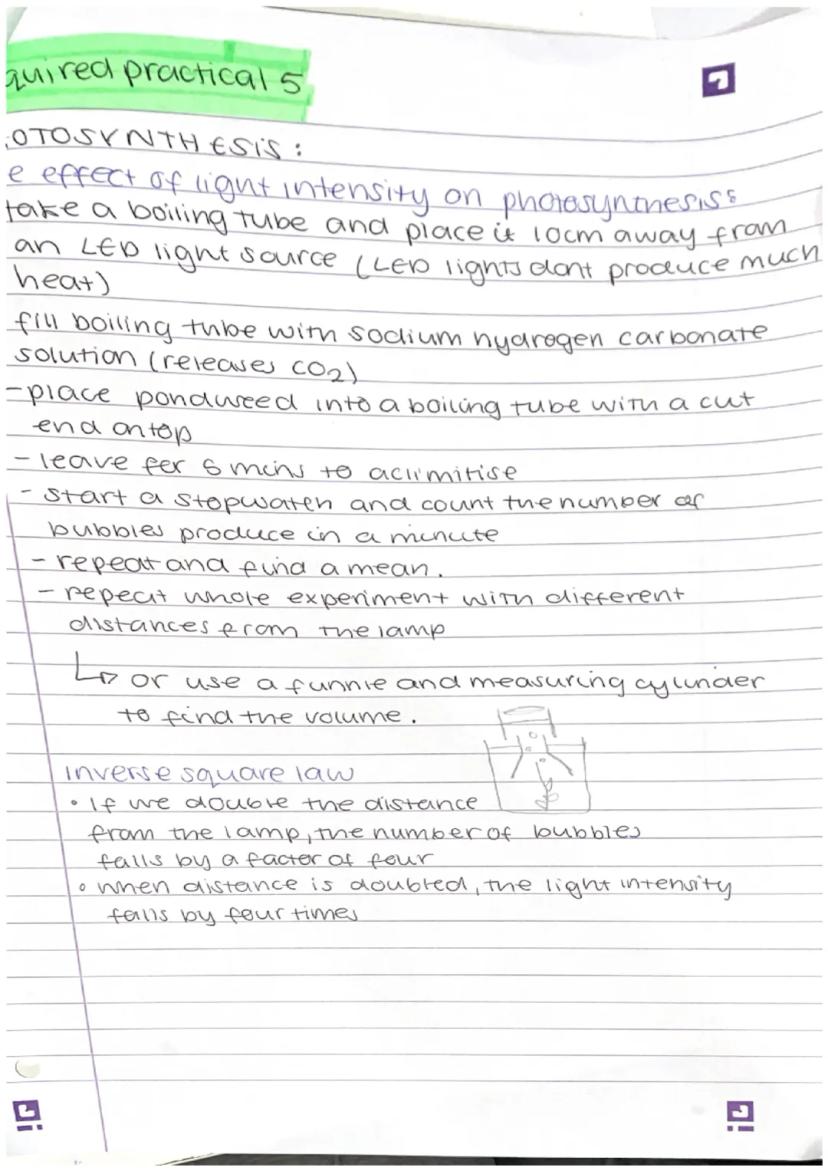 quired practical 5
OTOSYNTHESIS:
e effect of light intensity on photosynthesis:
take a boiling tube and place it 10cm away from
an LED light source (LED lights dont produce much
heat)
fill boiling tube with sodium hydrogen carbonate
solution (releases CO2)
- place pondweed into a boiling tube with a cut
end on top
- leave for 5 mins to aclimitise
- start a stopwatch and count the number of
bubbles produce in a minute
- repeat and find a mean.
- repeat whole experiment with different
distances from the lamp
↳ or use a funnle and measuring cylinder
to find the volume.
inverse square law
• If we double the distance
from the lamp, the number of bubbles
falls by a factor of four
• when distance is doubled, the light intensity
falls by four times